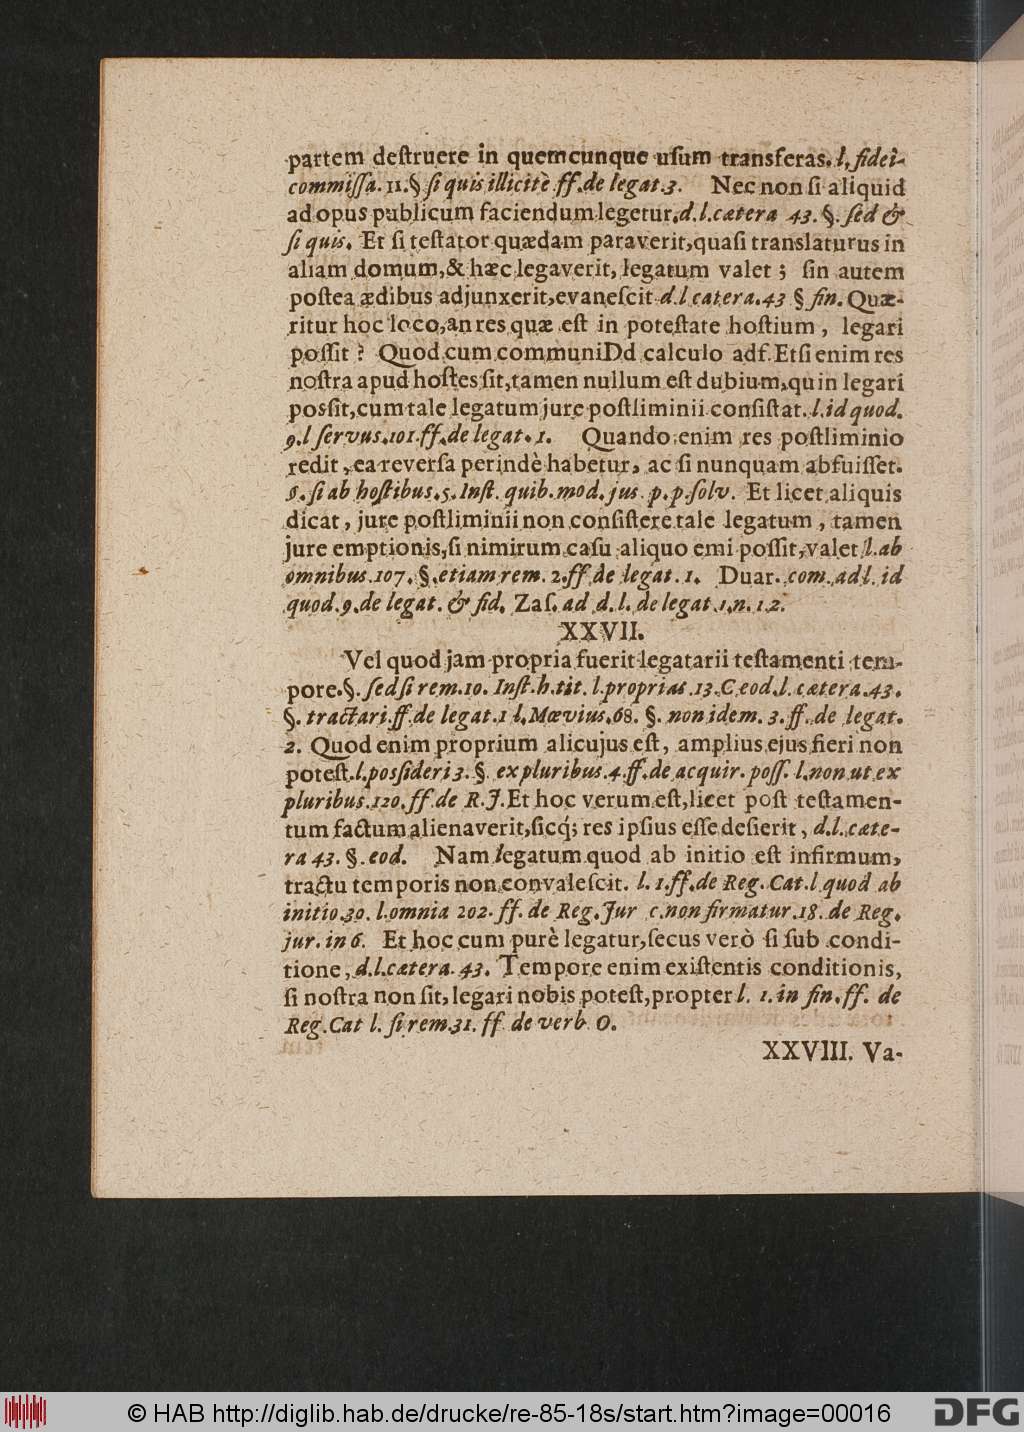 partem deſtruere in quemcunque uſum transferas. l. fidei-
commiſſa. 11. § ſi quis illicitè ff. de legat. 3. Nec non ſi aliquid
ad opus publicum faciendum legetur. d. l. cætera 43. §. ſed &
ſi quis. Et ſi teſtator quædam paraverit, quaſi translaturus in
aliam domum, & hæc legaverit, legatum valet; ſin autem
poſtea ædibus adjunxerit, evaneſcit d. l cætera. 43 § fin. Quæ-
ritur hoc loco, an res quæ eſt in poteſtate hoſtium, legari
poſſit? Quod cum communi Dd calculo adf. Etſi enim res
noſtra apud hoſtes ſit, tamen nullum eſt dubium, quin legari
posſit, cum tale legatum jure poſtliminii conſiſtat. l. id quod.
9. l ſervus. 101. ff. de legat. 1. Quando enim res poſtliminio
redit, ea reverſa perindè habetur, ac ſi nunquam abfuiſſet.
§. ſi ab hoſtibus. 5. Inſt. quib. mod. jus. p. p. ſolv. Et licet aliquis
dicat, jure poſtliminii non conſiſtere tale legatum, tamen
jure emptionis, ſi nimirum caſu aliquo emi poſſit, valet l. ab
omnibus. 107. §. etiam rem. 2. ff de legat. 1. Duar. com. ad l. id
quod. 9. de legat. & fid. Zaſ. ad d. l. de legat. 1. n. 12.
XXVII.
Vel quod jam propria fuerit legatarii teſtamenti tem-
pore. §. ſed ſi rem. 10. Inſt. h. tit. l. proprias. 13. C eod. l. cætera. 43.
§. tractari. ff. de legat. 1 l. Mœvius. 68. §. non idem. 3. ff. de legat.
2. Quod enim proprium alicujus eſt, amplius ejus fieri non
poteſt. l. posſideri 3. § ex pluribus. 4. ff. de acquir. poſſ. l. non ut ex
pluribus. 120. ff de R. J. Et hoc verum eſt, licet poſt teſtamen-
tum factum alienaverit, ſicq́; res ipſius eſſe deſierit, d. l. cæte-
ra 43. §. eod. Nam legatum quod ab initio eſt infirmum,
tractu temporis non convaleſcit. l. 1. ff. de Reg. Cat. l quod ab
initio. 30. l. omnia 202. ff. de Reg. Jur c. non firmatur. 18. de Reg.
jur. in 6. Et hoc cum purè legatur, ſecus verò ſi ſub condi-
tione, d. l. cætera. 43. Tempore enim exiſtentis conditionis,
ſi noſtra non ſit, legari nobis poteſt, propter l. 1. in fin. ff. de
Reg. Cat l. ſi rem. 31. ff de verb O.
XXVIII. Va-
© HAB http://diglib.hab.de/drucke/re-85-18s/start.htm?image=00016
DFG